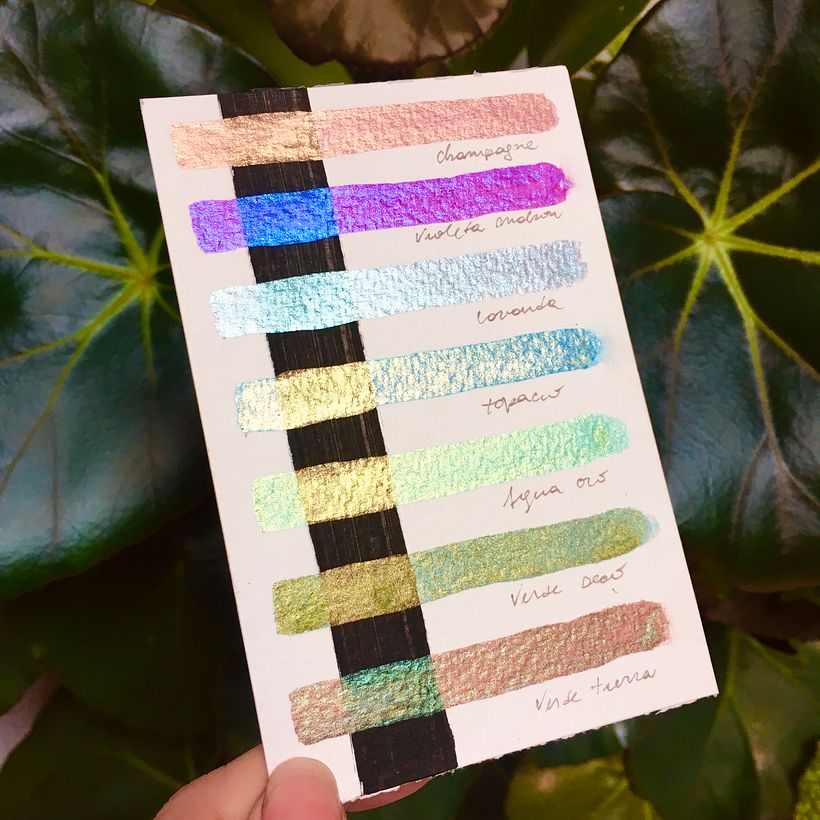 champagne
Violeta
lavanda
topacio
Agua oro
Verde
Verde tierra